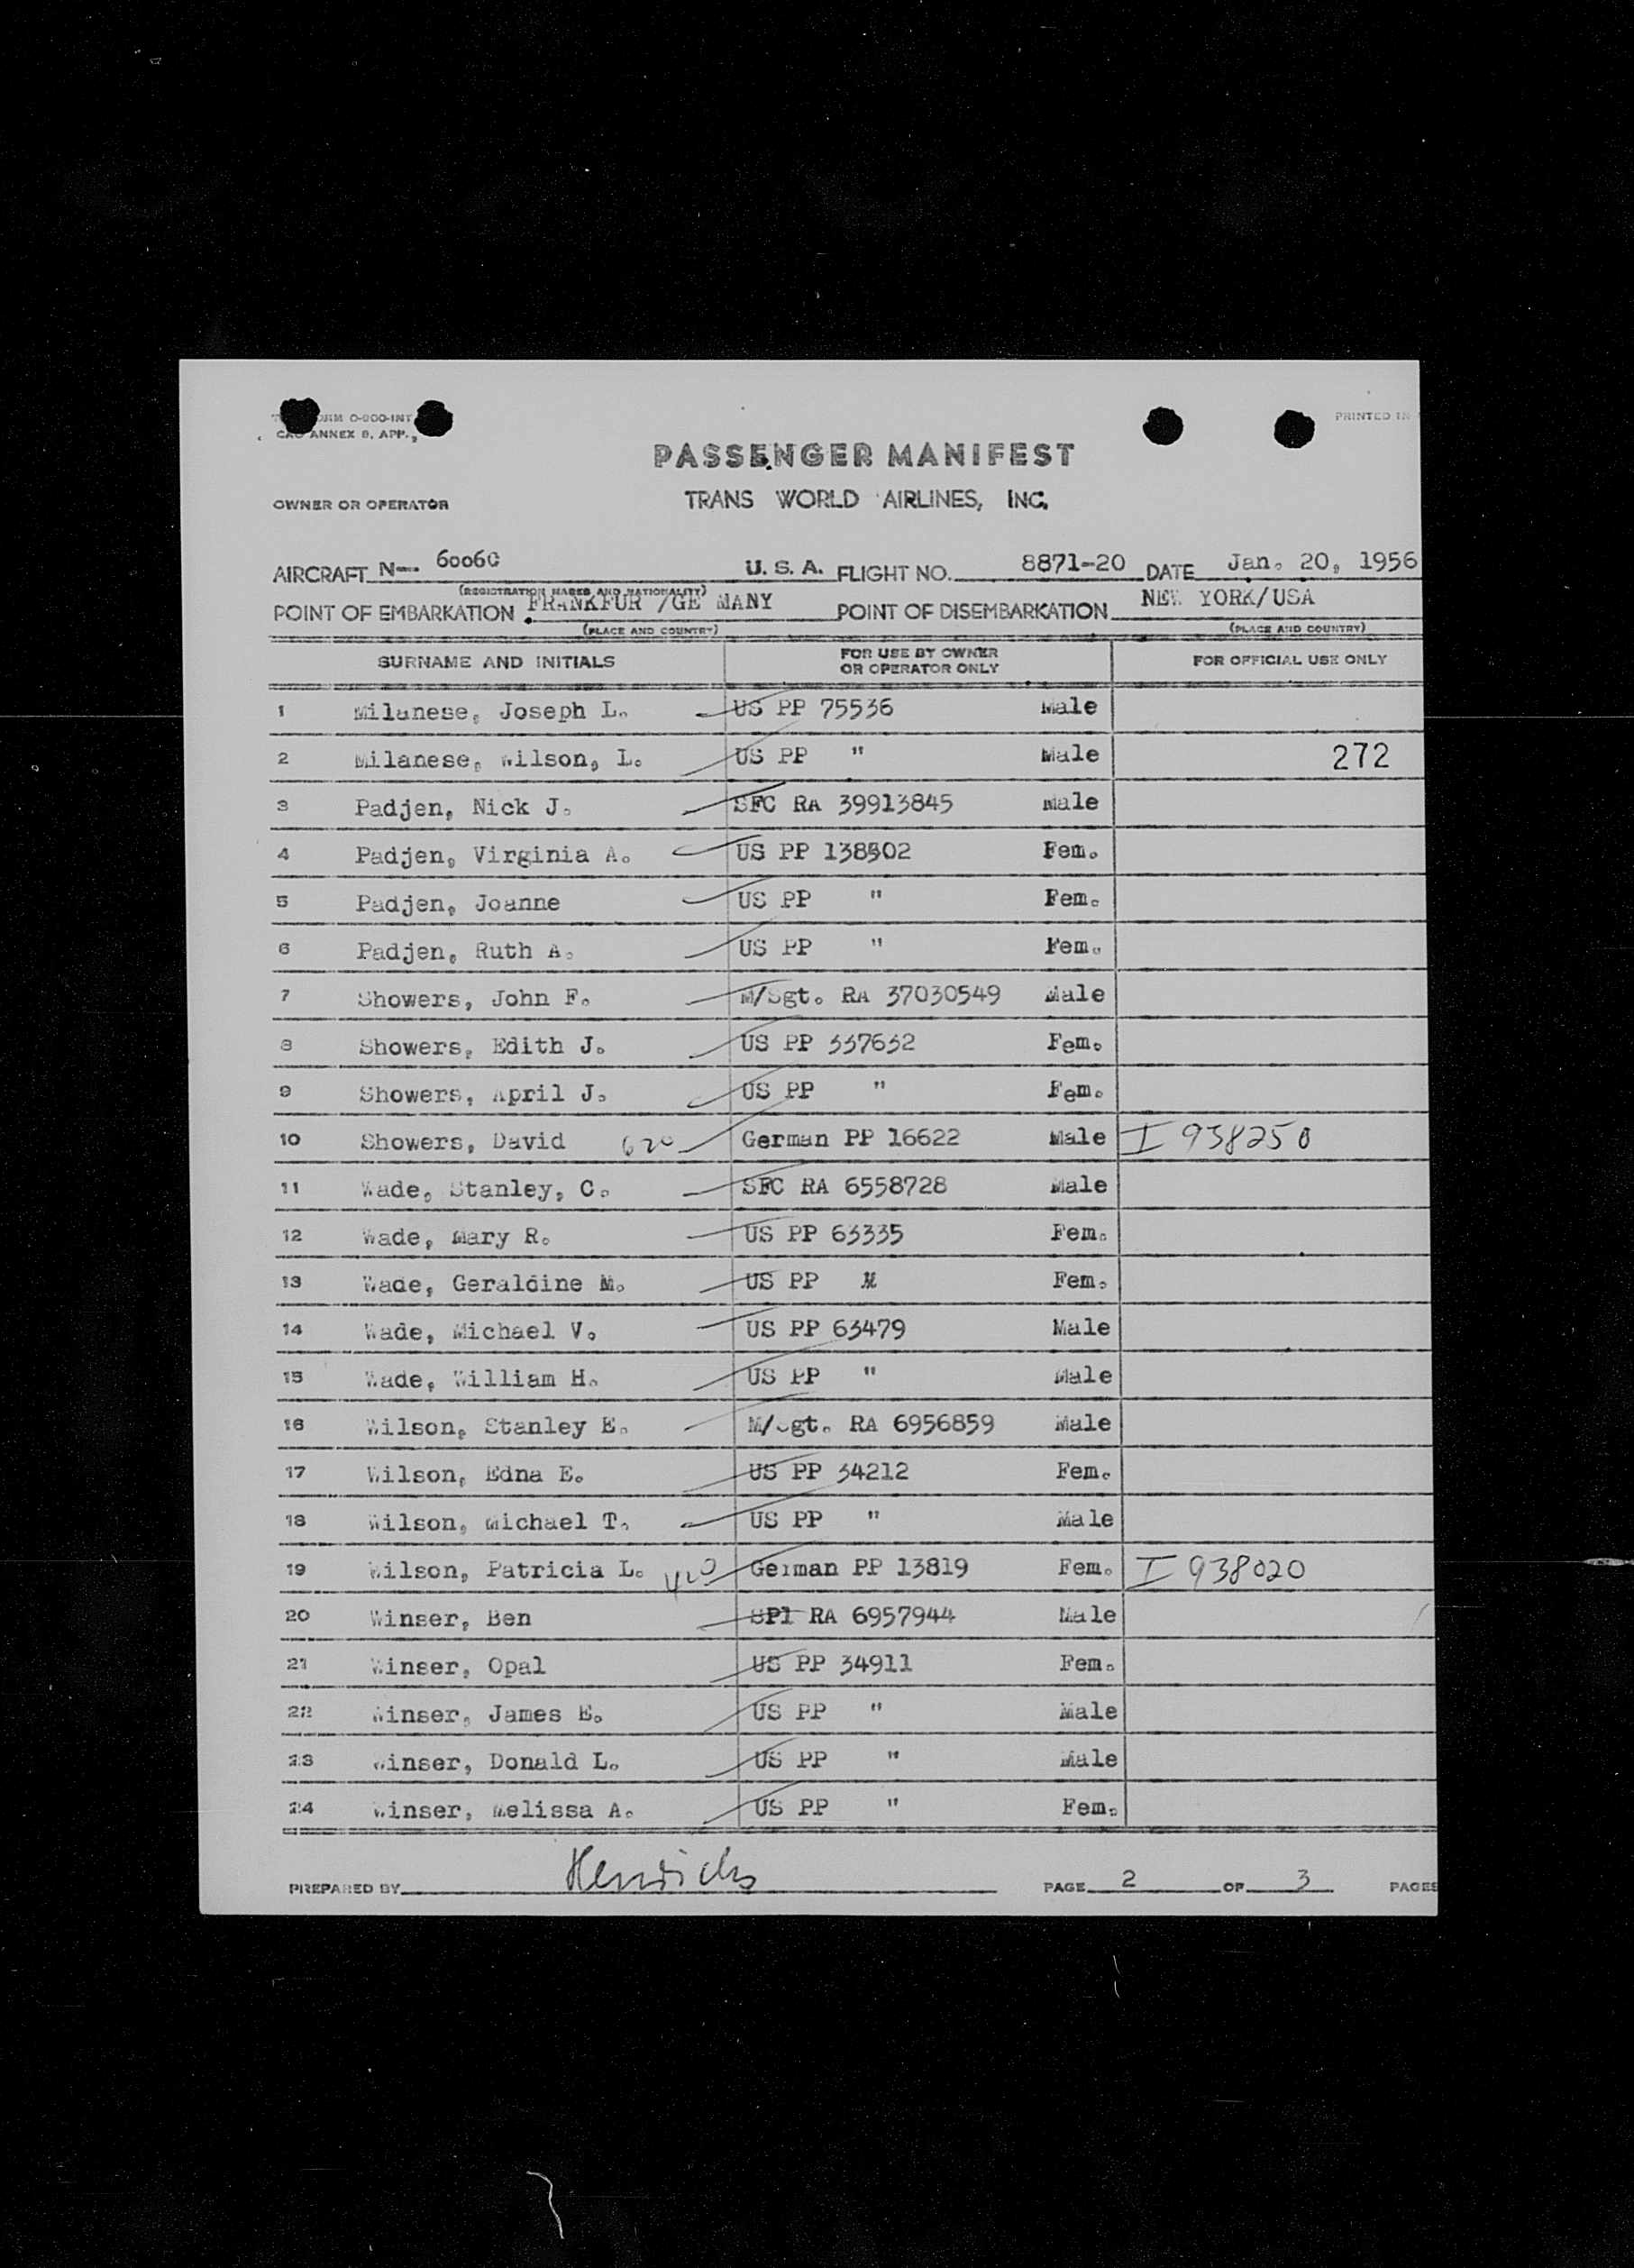 ORM O-800-INT PRINTED IN
ANNEX 9, APP.
PASSENGER MANIFEST
OWNER OR OPERATOR TRANS WORLD AIRLINES, INC.
AIRCRAFT N-- 6006C U. S. A. FLIGHT NO. 8871-20 DATE Jan. 20, 1956
(REGISTRATION MARKS AND NATIONALITY)
POINT OF EMBARKATION FRANKFUR /GE MANY POINT OF DISEMBARKATION NEW YORK/USA
(PLACE AND COUNTRY) (PLACE AND COUNTRY)
SURNAME AND INITIALS FOR USE BY OWNER OR OPERATOR ONLY FOR OFFICIAL USE ONLY
1 Milanese, Joseph L. US PP 75536 Male
2 Milanese, Wilson, L. US PP " Male 272
3 Padjen, Nick J. SFC RA 39913845 Male
4 Padjen, Virginia A. US PP 138502 Fem.
5 Padjen, Joanne US PP " Fem.
6 Padjen, Ruth A. US PP " Fem.
7 Showers, John F. M/Sgt. RA 37030549 Male
8 Showers, Edith J. US PP 337632 Fem.
9 Showers, April J. US PP " Fem.
10 Showers, David 620 German PP 16622 Male I 938250
11 Wade, Stanley, C. SFC RA 6558728 Male
12 Wade, Mary R. US PP 63335 Fem.
13 Wade, Geraldine M. US PP " Fem.
14 Wade, Michael V. US PP 63479 Male
15 Wade, William H. US PP " Male
16 Wilson, Stanley E. M/Sgt. RA 6956859 Male
17 Wilson, Edna E. US PP 34212 Fem.
18 Wilson, Michael T. US PP " Male
19 Wilson, Patricia L. 420 German PP 13819 Fem. I 938020
20 Winser, Ben SP1 RA 6957944 Male
21 Winser, Opal US PP 34911 Fem.
22 Winser, James E. US PP " Male
23 Winser, Donald L. US PP " Male
24 Winser, Melissa A. US PP " Fem.
PREPARED BY Henrichs PAGE 2 OF 3 PAGES